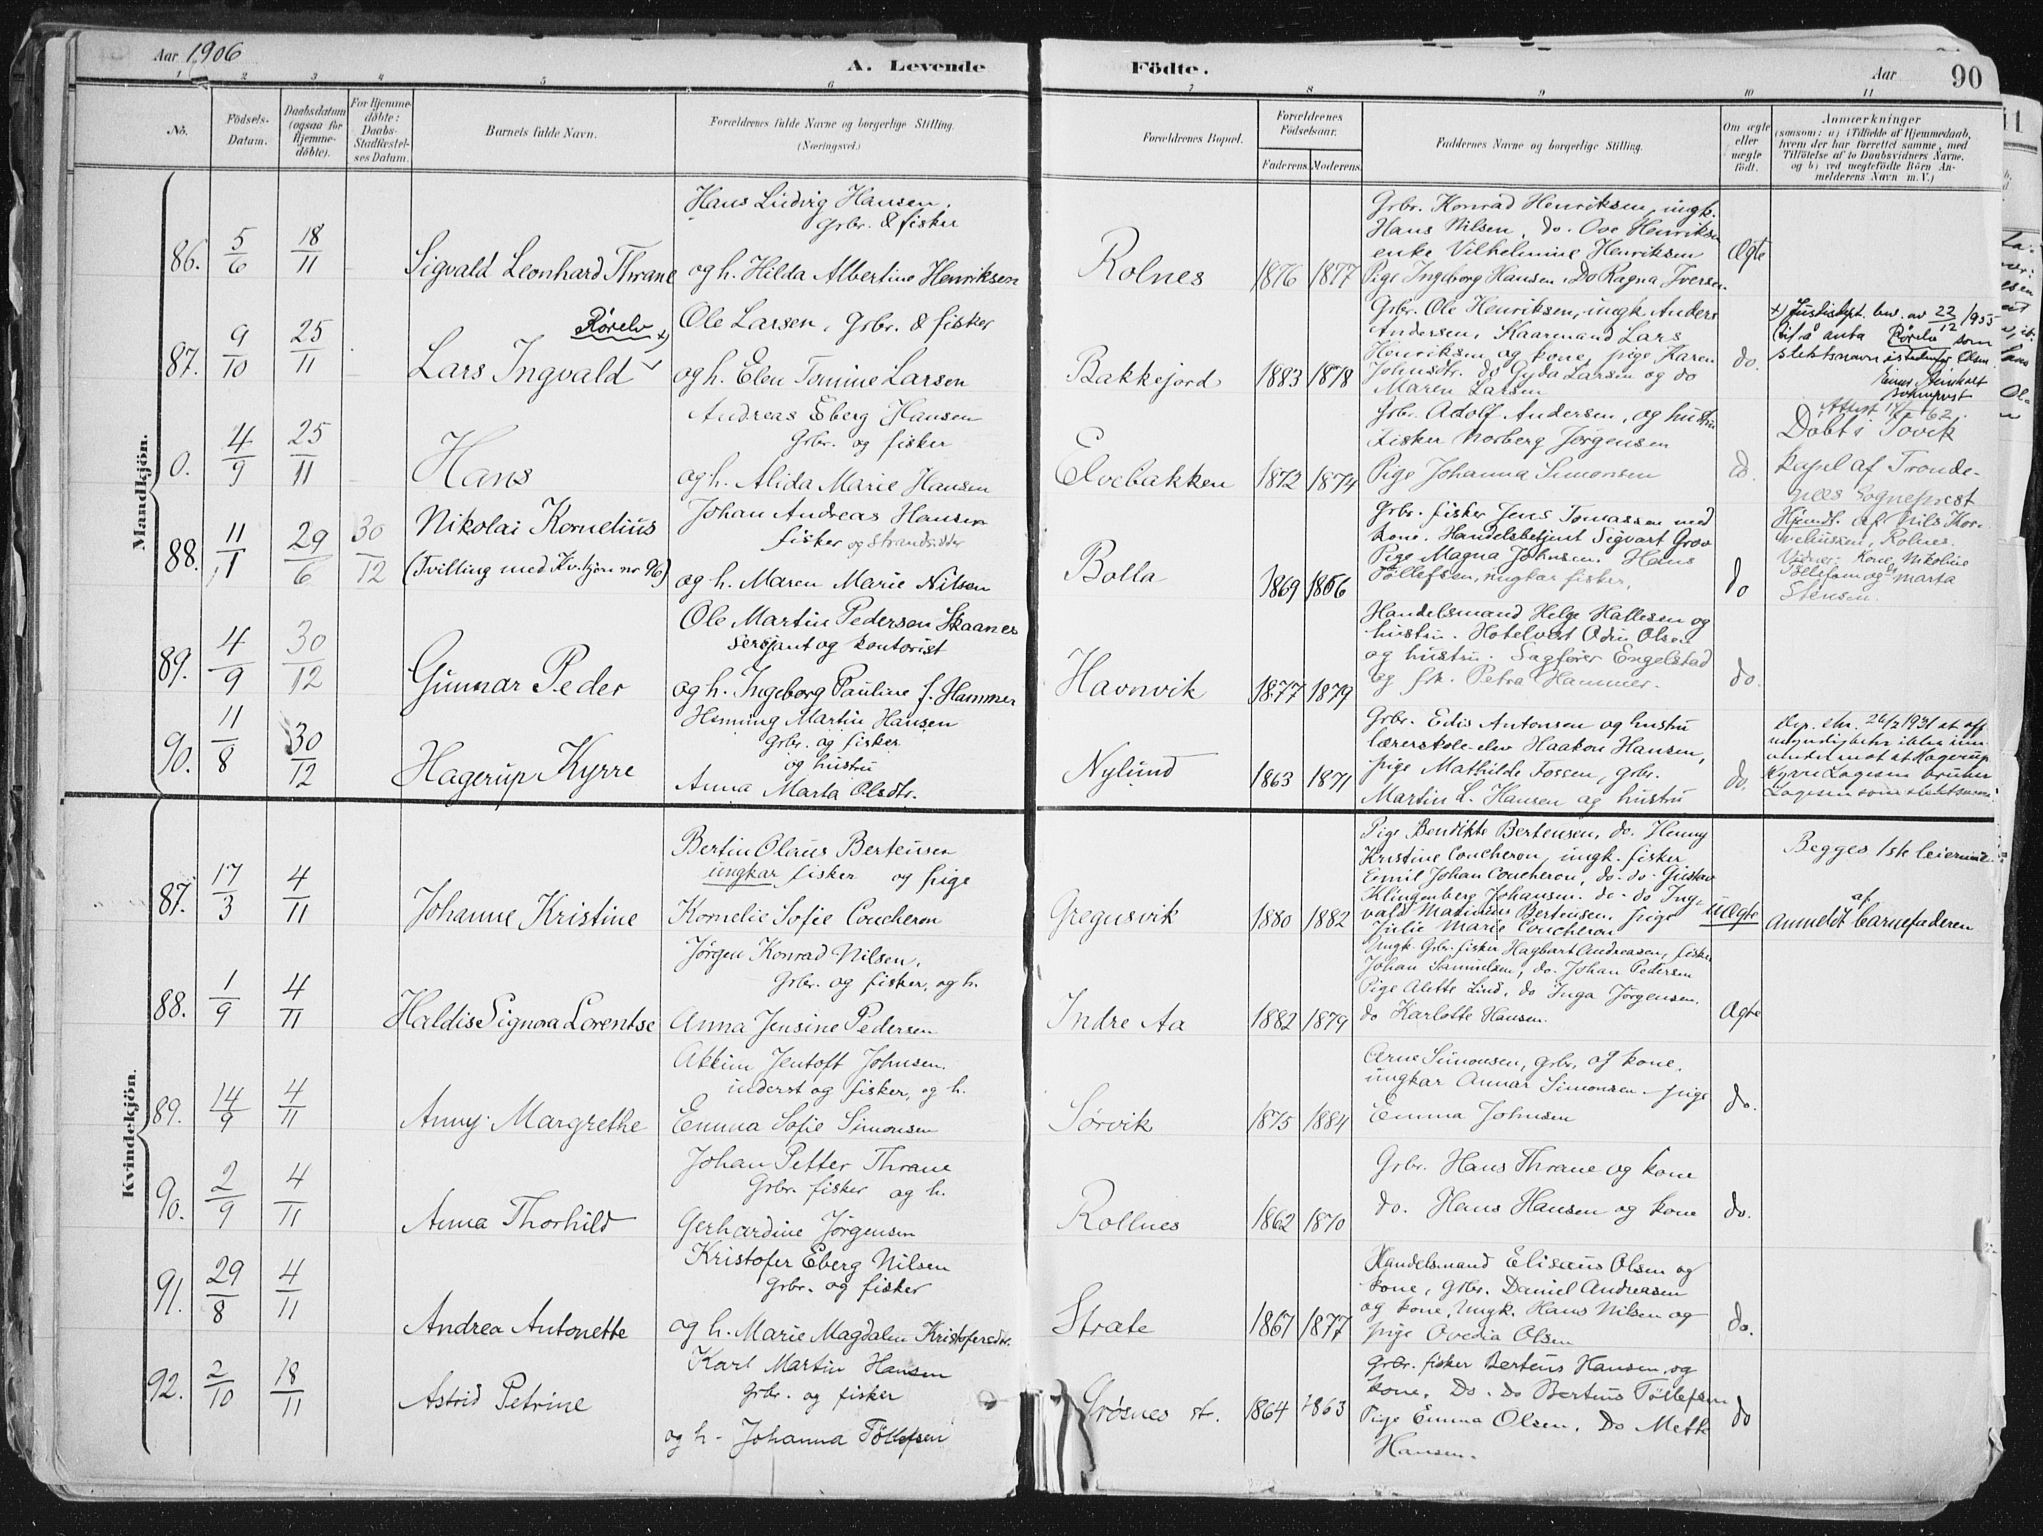 Aar 1906
A. Levende
Födte.
Aar
90
1 2 3 4 5 6 7 8 9 10 11
No.
Födsels-
Datum.
Daabsdatum
(ogsaa for
Hjemme-
döbte).
For Hjemme-
döbte:
Daabs-
Stadfæstel-
ses Datum.
Barnets fulde Navn.
Forældrenes fulde Navne og borgerlige Stilling.
(Næringsvei.)
Forældrenes Bopæl.
Forældrenes
Födselsaar.
Faderens. Moderens.
Faddernes Navne og borgerlige Stilling.
Om ægte
eller
uægte
födt.
Anmærkninger
(saasom: a) i Tilfælde af Hjemmedaab,
hvem der har forrettet samme, med
Tilföielse af to Daabsvidners Navne.
og b) ved uægtefödte Börn An-
melderens Navn m. V.)
Mandkjön.
86. 5/6 18/11
Sigvald Leonhard Thrane
Hans Ludvig Hansen.
Grbr. & fisker
og h. Hilda Albertine Henriksen
Rolnes
1876 1877
Grbr. Konrad Henriksen, ungk.
Hans Nilsen, do. Ove Henriksen
enke Vilhelmine Henriksen
Pige Ingeborg Hansen. Do Ragna Iversen
Ægte
87. 9/10 25/11
Rørelv x)
Lars Ingvald
Ole Larsen, Grbr. & fisker
og h. Elen Tomine Larsen
Bakkejord
1883 1878
Grbr. Ole Henriksen, ungk Anders
Andersen, Kaarmand Lars
Henriksen og kone, pige Karen
Johnsdtr. do Gyda Larsen og do
Maren Larsen
do.
x) Justisdept. bev. av 22/12 1955
til å anta Rørelv som
slektsnavn istedenfor Olsen
Attest 62.
0. 4/9 25/11
Hans
Andreas Esberg Hansen
Grbr. og fisker
og h. Alida Marie Hansen
Elvebakken
1872 1874
Grbr. Adolf Andersen, og hustru
Fisker Norberg Jørgensen
Pige Johanna Simonsen
do
Døbt i Tovik
Kapel af Tronde-
næs Sogneprest
88. 11/1 29/6 30/12
Nikolai Kornelius
(Tvilling med Kv.kjøn nr 96)
Johan Andreas Hansen
fisker og strandsidder
og h. Maren Marie Nilsen
Bolla
1869 1866
Grbr. fisker Jens Tomassen med
kone. Handelsbetjent Sigvart Grov
Pige Magna Johnsen. Hans
Tøllefsen, ungkar fisker.
do
Hjemd. af Nils Kor-
neliussen, Rolnes.
Vidner: Kone, Nikoline
Tøllefsen og do Marta
Stensen.
89. 4/9 30/12
Gunnar Peder
Ole Martin Pedersen Skaanes
Sersjant og kontorist
og h. Ingeborg Pauline f. Hammer
Havnvik
1877 1879
Handelsmand Helge Hallesen og
hustru. Hotelvert Odin Olsen
og hustru. Sagfører Engelstad
og frk. Petra Hammer.
do.
90. 11/8 30/12
Hagerup Kyrre
Heming Martin Hansen
Grbr. og fisker
og hustru
Anna Marta Olsdtr.
Nylund
1863 1871
Grbr. Edis Antonsen og hustru
lærerskole-elev Haakon Hansen,
pige Mathilde Fossen, Grbr.
Martin L. Hansen og hustru
do.
26/2 1931 at off
myndigheter ikke inn
vender mot at Hagerup
Kyrre Lagesen bruker
Lagesen som slektsnavn
Kvindekjön.
87. 17/3 4/11
Johanne Kristine
Bertin Olaus Bertensen
ungkar fisker og pige
Kornelie Sofie Coucheron
Gregusvik
1880 1882
Pige Bendikte Bertensen, do. Henny
Kristine Coucheron, ungk. fisker
Emil Johan Coucheron, do-do-Gustav
Klingenberg Johansen. do-do Ing-
vald Mathias Bertensen. pige
Julie Marie Coucheron
Uægte
Begges 1ste leiermaal
anmeldt af barnefaderen
88. 1/9 4/11
Haldis Signora Lorentse
Jørgen Konrad Nilsen.
Grbr. og fisker, og h.
Anna Jensine Pedersen
Indre Aa
1882 1879
Ungk. Grbr. fisker Hagbart Andreasen, fisker
Johan Samuelsen, do. Johan Pedersen
Pige Alette Lind, do Inga Jørgensen.
do Karlotte Hansen.
Ægte
89. 14/9 4/11
Anny Margrethe
Akkim Jentoft Johnsen.
inderst og fisker, og h.
Emma Sofie Simonsen
Sørvik
1875 1884
Arne Simonsen, Grbr. og kone.
ungkar Annar Simonsen - pige
Emma Johnsen
do.
90. 2/9 4/11
Anna Thorhild
Johan Petter Thrane
Grbr. fisker og h.
Gerhardine Jørgensen
Rollnes
1862 1870
Grbr. Hans Thrane og kone
do. Hans Hansen og kone
do.
91. 29/8 4/11
Andrea Antonette
Kristofer Eberg Nilsen
Grbr. og fisker
og h. Marie Magdalen Kristofersdtr.
Strate
1867 1877
Handelsmand Elisæus Olsen og
kone, Grbr. Daniel Andreasen
og kone, Ungk. Hans Nilsen og
pige Ovedia Olsen
do.
92. 2/10 18/11
Astrid Petrine
Karl Martin Hansen
Grbr. og fisker
og h- Johanna Tøllefsen
Grøsnes st.
1864 1863
Grbr. fisker Bertens Hansen og
kone. Do-do Bertens Tøllefsen
Pige Emma Olsen. Do Mette
Hansen.
do